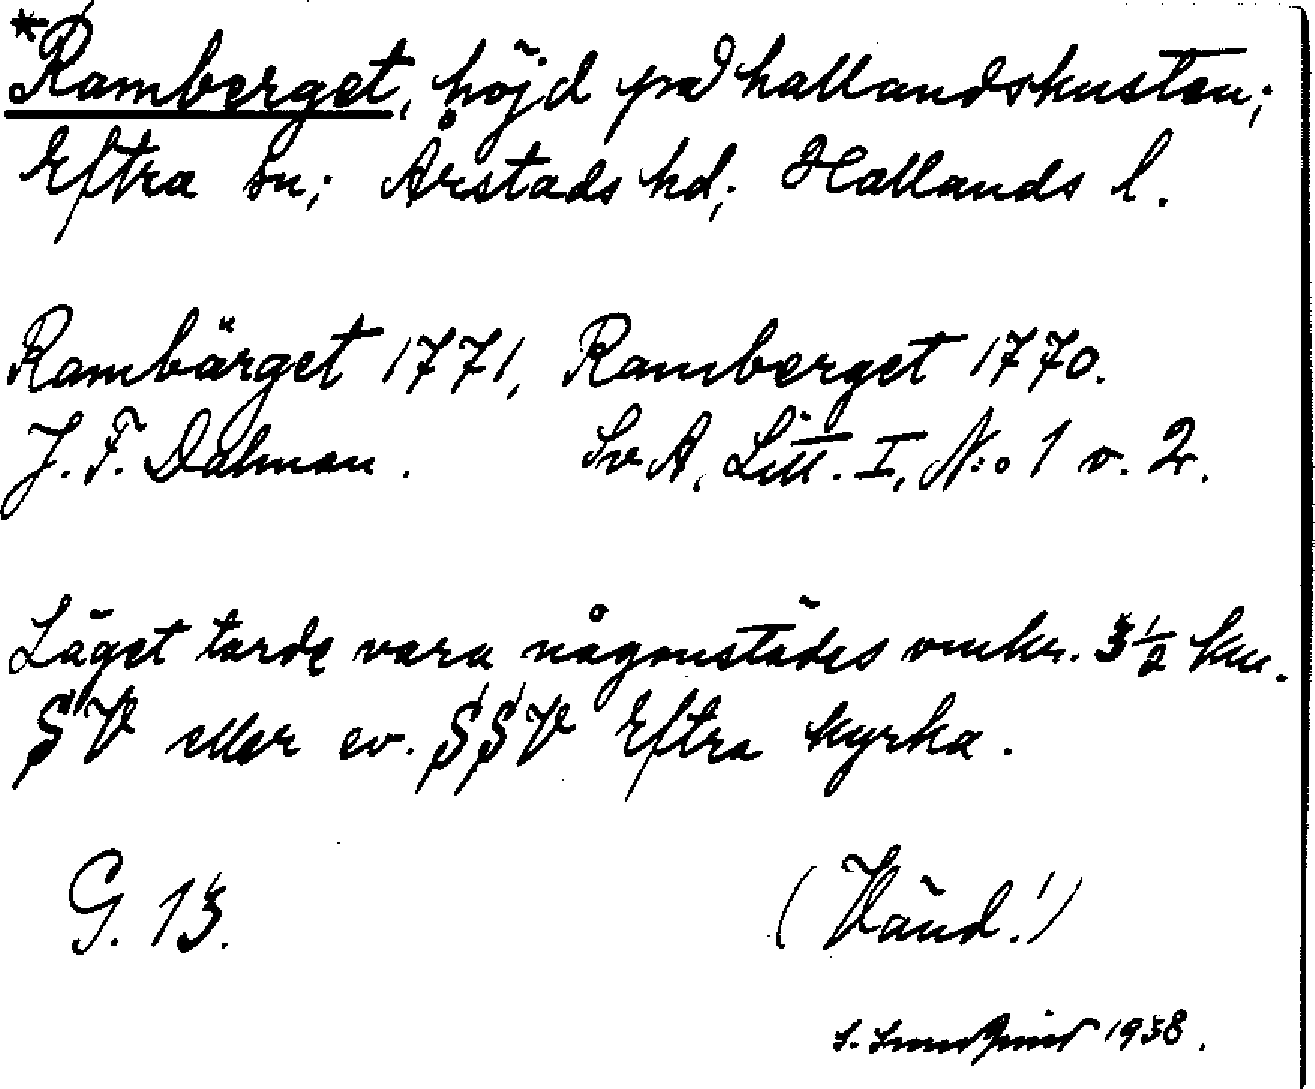 *Ramberget, höjd på hallandskusten;
Eftra sn; Årstads hd; Hallands l.
Rambärget 1771, Ramberget 1770.
J. F. Dalman. SvA, Litt. I, N:o 1 o. 2.
Läget torde vara någonstädes omkr. 3 1/2 km.
SV eller ev. SSV Eftra kyrka.
G. 13.
(Vänd!)
1938.